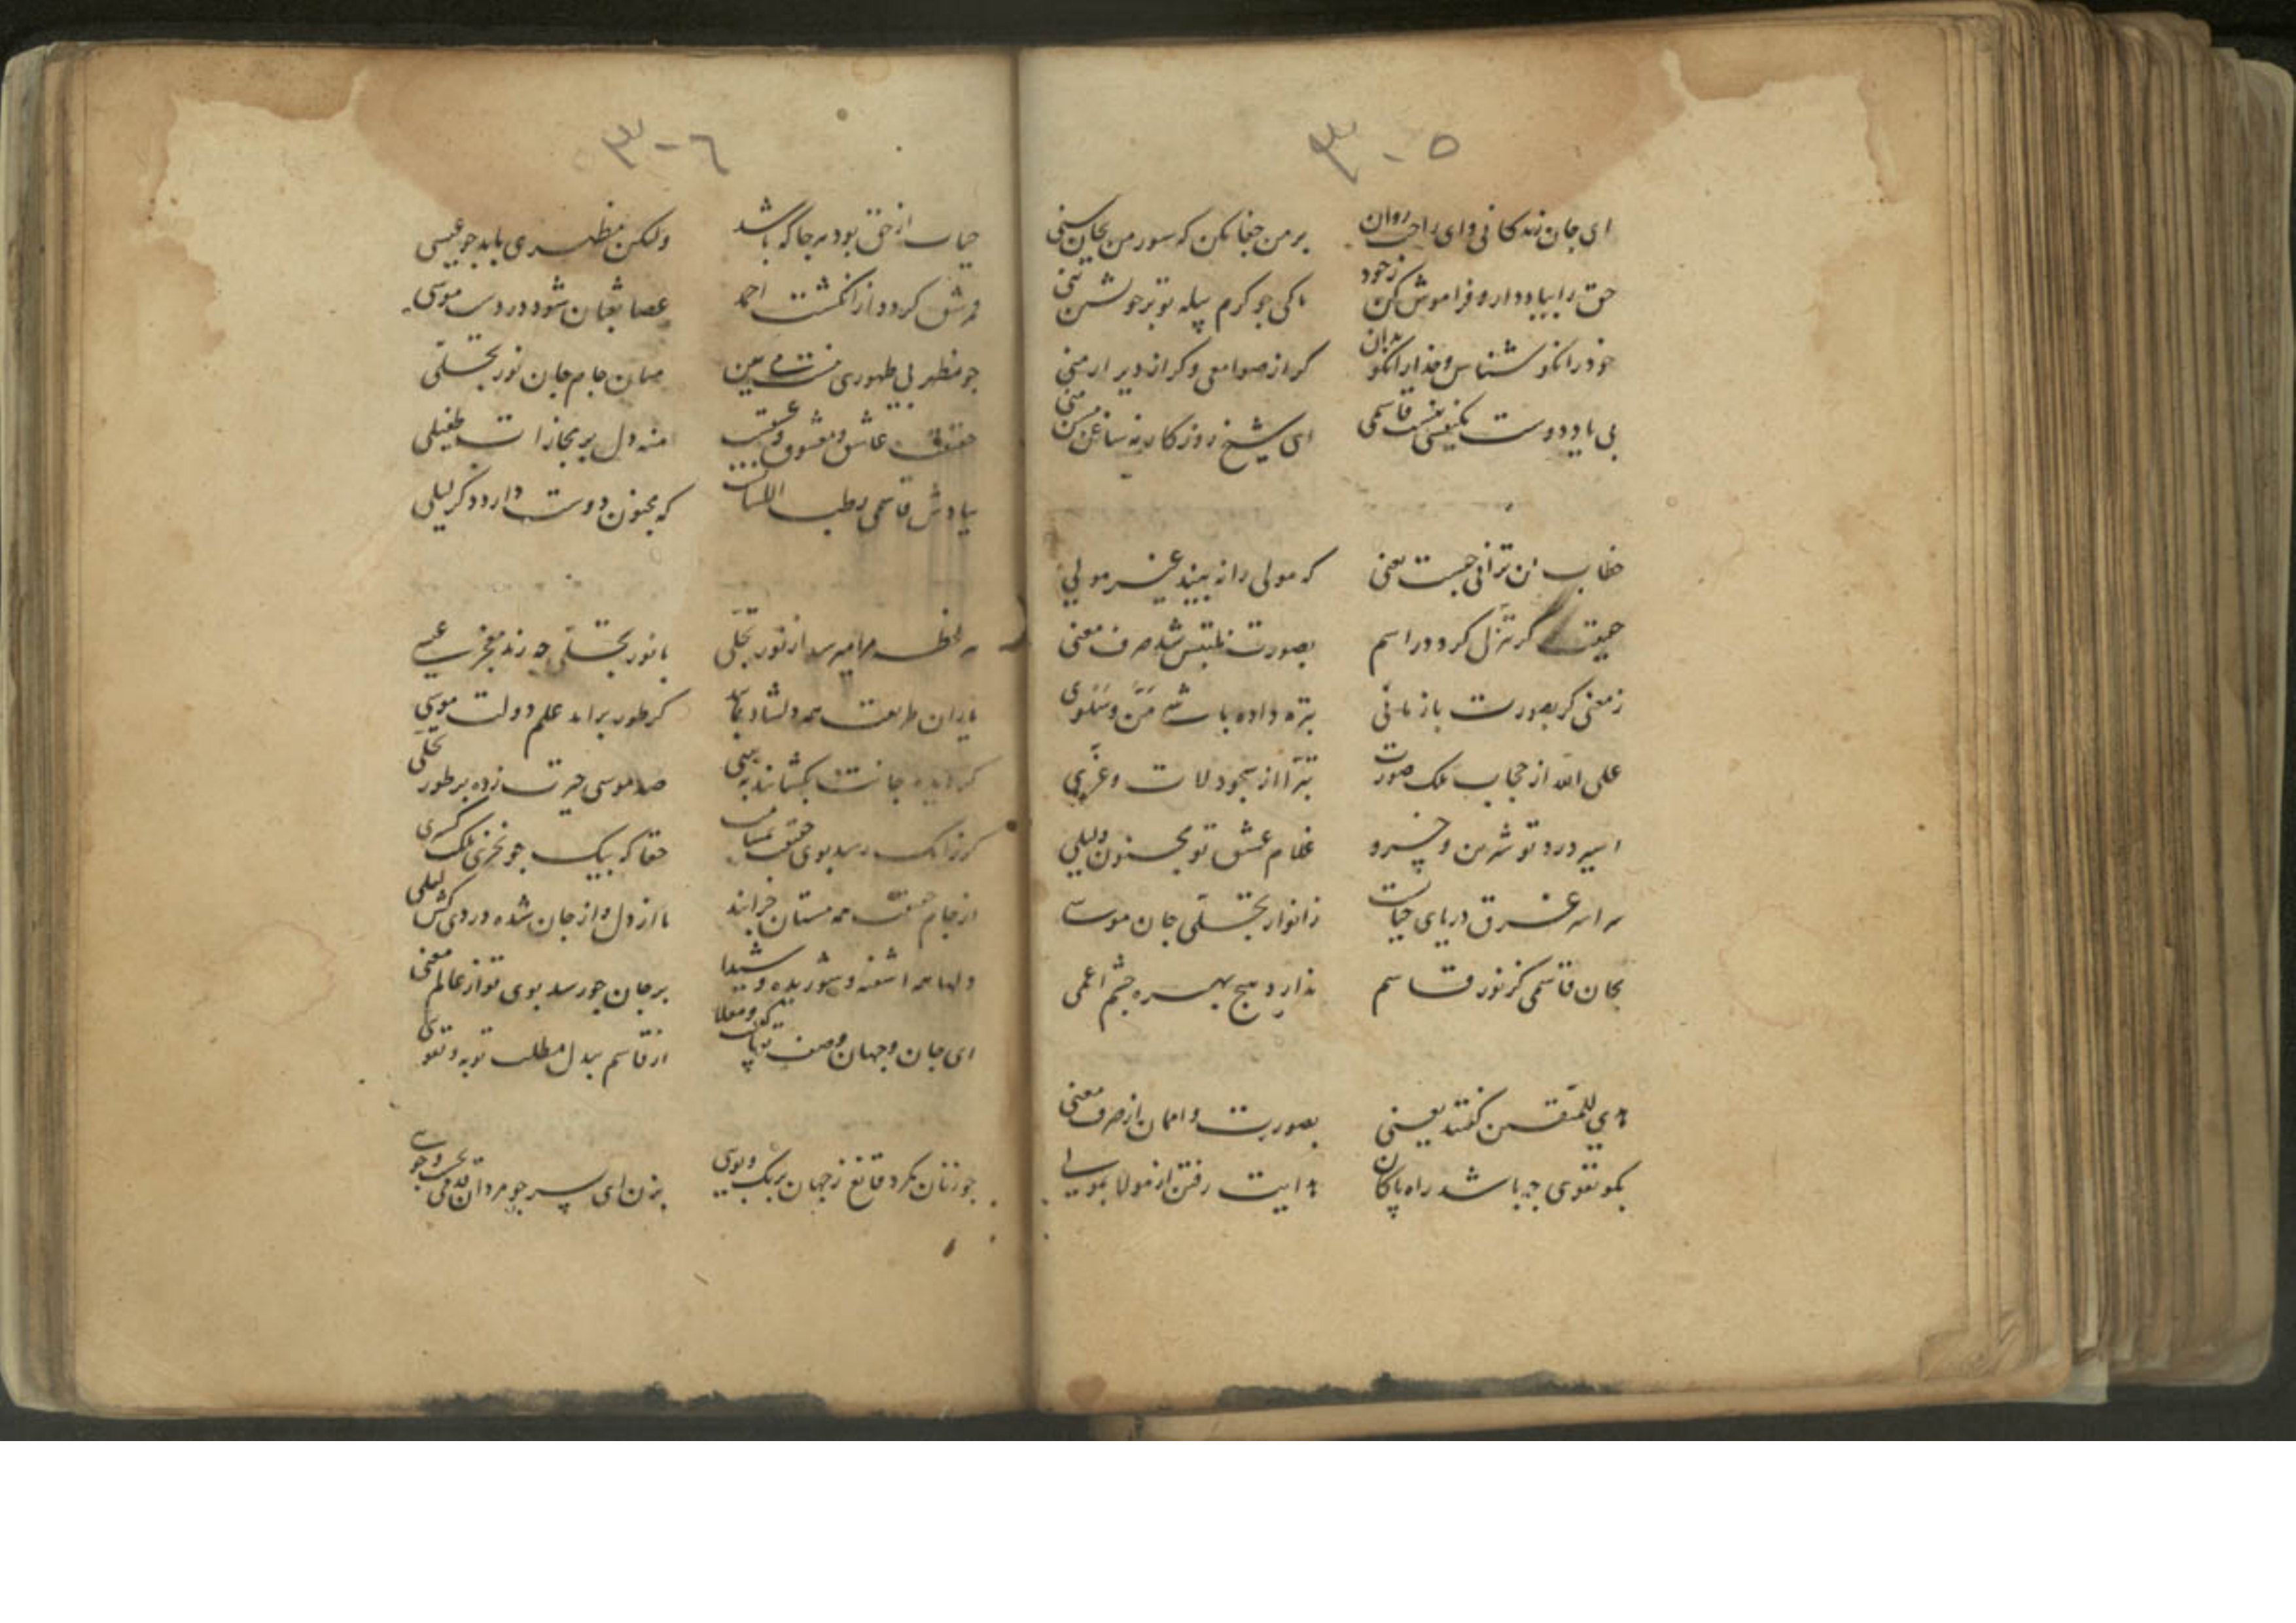 ۳۰۵
ای جان زندگانی و ای راحت روان بر من جفا مکن که
حق را بیاد دار و فراموش کن ز خود تا کی جو کرم پیله تو بر خویشتن تنی
خود را نکو شناس و خدا را نکو بدان کر از صوامعی و کر از دیر ارمنی
بی یاد دوست یکنفسی نیست قاسمی ای شیخ روزکار
خطاب لن ترانی جیست یعنی که مولی را نبیند غیر مولی
حقیقت کر تنزل کرد در اسم بصورت ملتبس شد صرف معنی
ز معنی کر بصورت باز مانی بتره داده باشی من و سلوی
علی الله از حجاب ملک صورت تبرا از سجود لات و عزی
اسیر درد تو شیرین و خسرو غلام عشق تو مجنون و لیلی
سراسر غرق دریای حیات ز انوار تجلی جان موسی
بجان قاسمی کز نور قاسم ندارد هیچ بهره جشم اعمی
هدی للمتقین کفتند یعنی بصورت وا ممان از صرف معنی
بکو تقوی جه باشد راه پاکان هدایت رفتن از مولا بمولی
۳۰۶
حیات از حق بود هر جا که باشد ولیکن مظهری باید جو عیسی
قمر شق کردد از انکشت احمد عصا ثعبان شود در دست موسی
جو مظهر بی ظهوری نیست می بین میان جام جان نور تجلی
حقیقت عاشق و معشوق و عشقت منه دل بر مجازات طفیلی
بیادش قاسمی رطب اللسانست که مجنون دوست دارد ذکر لیلی
هر لحظه مرا میرسد از نور تجلی با نور تجلی جه زند معجز عیسی
یاران طریقت همه دلشاد بمانید کز طور برامد علم دولت موسی
کر دیده جانت بکشایند به بینی صد موسی حیرت زده بر طور تجلی
کر زانک رسد بوی حقیقت بمشامت حقا که بیک جو نخری ملک کسری
از جام حقیقت همه مستان خرابند ما از دل و از جان شده دردی کش لیلی
دلها همه اشفته و شوریده و شیدا بر جان جو رسد بوی تو از عالم معنی
ای جان و جهان وصف تو پاکست و معلا از قاسم بیدل مطلب توبه و تقوی
جو زنان مکرد قانع ز جهان برنک و بویی بزن ای پسر جو مردان قدمی بجست و جویی